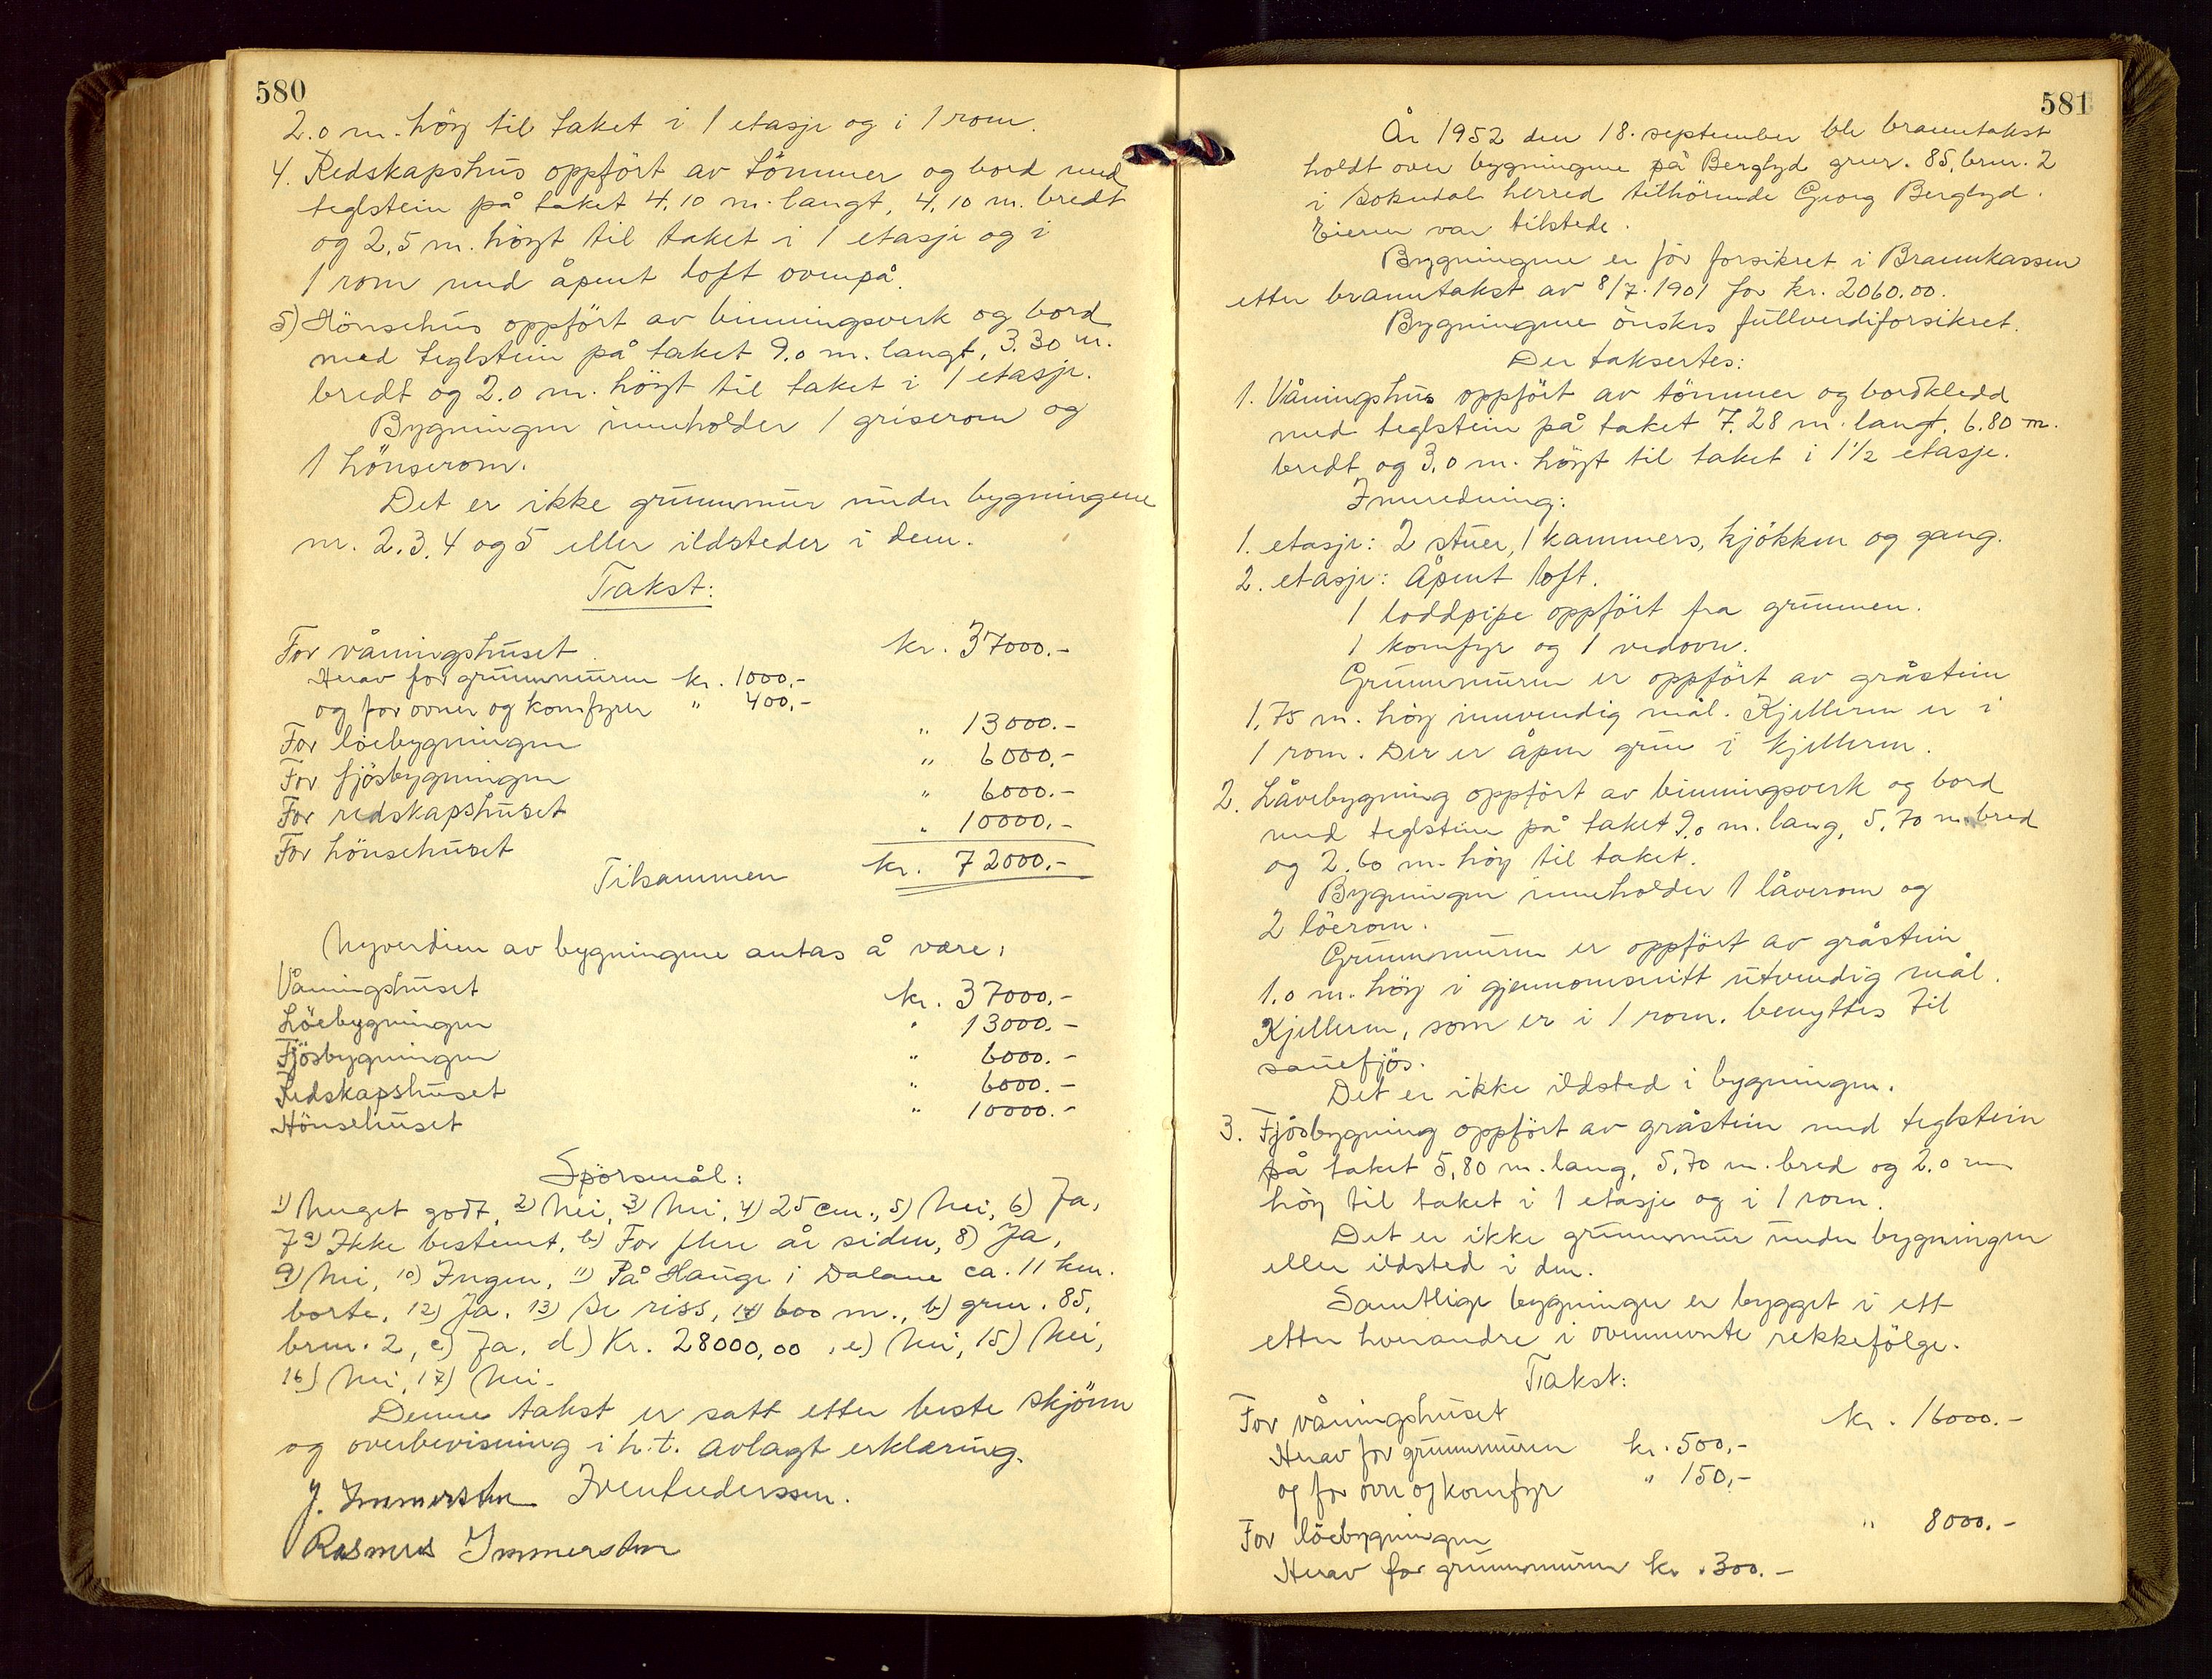 580
2.0 m. höy til taket i 1 etasje og i 1 rom.
4. Redskapshus oppfört av tömmer og bord med
teglstein på taket 4,10 m. langt, 4,10 m. bredt
og 2,5 m. höyt til taket i 1 etasje og i
1 rom med åpent loft ovenpå.
5) Hönsehus oppfört av binningsverk og bord
med teglstein på taket 9.0 m. langt, 3.30 m.
bredt og 2.0 m. höyt til taket i 1 etasje.
Bygningen inneholder 1 griserom og
1 hönserom.
Det er ikke grunnmur under bygningene
nr. 2.3.4 og 5 eller ildsteder i dem.
Takst:
For våningshuset kr. 37000.-
Herav for grunnmuren kr. 1000,-
og for ovner og komfyrer " 400,-
For löebygningen " 13000.-
For fjösbygningen " 6000.-
For redskapshuset " 6000.-
For hönsehuset " 10000.-
Tilsammen kr. 72000,-
Nyverdien av bygningene antas å være:
Våningshuset kr. 37000,-
Löebygningen " 13000.-
Fjösbygningen " 6000.-
Redskapshuset " 6000.-
Hönsehuset " 10000.-
Spörsmål:
1) Meget godt, 2) Nei, 3) Nei, 4) 25 cm., 5) Nei, 6) Ja,
7 a) Ikke bestemt, b) For flere år siden, 8) Ja,
9) Nei, 10) Ingen, 11) På Hauge i Dalane ca. 11 km.
borte, 12) Ja, 13) Se riss, 14) 600 m., b) gnr. 85,
brnr. 2, c) Ja, d) Kr. 28000,00, e) Nei, 15) Nei,
16) Nei, 17) Nei.
Denne takst er satt etter beste skjönn
og overbevisning i h.t. avlagt erklæring.
J. Immerstein
Rasmus Immerstein
581
År 1952 den 18. september ble branntakst
holdt over bygningene på Berglyd gnr. 85, brnr. 2
i Sokndal herred tilhörende Georg Berglyd.
Eieren var tilstede.
Bygningene er för forsikret i Brannkassen
etter branntakst av 8/7. 1901 for kr. 2060.00.
Bygningene önskes fullverdiforsikret.
Der taksertes:
1. Våningshus oppfört av tömmer og bordkledd
med teglstein på taket 7,28 m. langt, 6.80 m.
bredt og 3,0 m. höyt til taket i 1½ etasje.
Innredning:
1. etasje: 2 stuer, 1 kammers, kjökken og gang.
2. etasje: Åpent loft.
1 loddpipe oppfört fra grunnen.
1 komfyr og 1 vedovn.
Grunnmuren er oppfört av gråstein
1,75 m. höy innvendig mål. Kjelleren er i
1 rom. Der er åpen grue i kjelleren.
2. Låvebygning oppfört av binningsverk og bord
med teglstein på taket 9,0 m. lang, 5,70 m. bred
og 2.60 m. höy til taket.
Bygningen inneholder 1 låverom og
2 löerom.
Grunnmuren er oppfört av gråstein
1.0 m. höy i gjennomsnitt utvendig mål.
Kjelleren, som er i 1 rom. benyttes til
sauefjös.
Det er ikke ildsted i bygningen.
3. Fjösbygning oppfört av gråstein med teglstein
på taket 5,80 m. lang, 5,70 m. bred og 2.0 m
höy til taket i 1 etasje og i 1 rom.
Det er ikke grunnmur under bygningen
eller ildsted i den.
Samtlige bygninger er bygget i ett
etter hverandre i ovennevnte rekkefölge.
Takst:
For våningshuset kr. 16000.-
Herav for grunnmuren kr. 500,-
og for ovn og komfyr " 150,-
For löebygningen " 8000.-
Herav for grunnmuren kr. 300.-